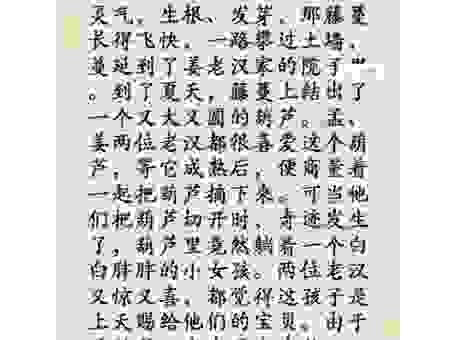 灵气，生根、发芽，那藤蔓
长得飞快，一路攀过土墙，
蔓延到了姜老汉家的院子
。到了夏天，藤蔓上结出了
一个又大又圆的葫芦。孟、
姜两位老汉都很喜爱这个葫
芦，等它成熟后，便商量着
一起把葫芦摘下来。可当他
们把葫芦切开时，奇迹发生
了，葫芦里竟然躺着一个白
白胖胖的小女孩。两位老汉
又惊又喜，都觉得这孩子是
上天赐给他们的宝贝。由于